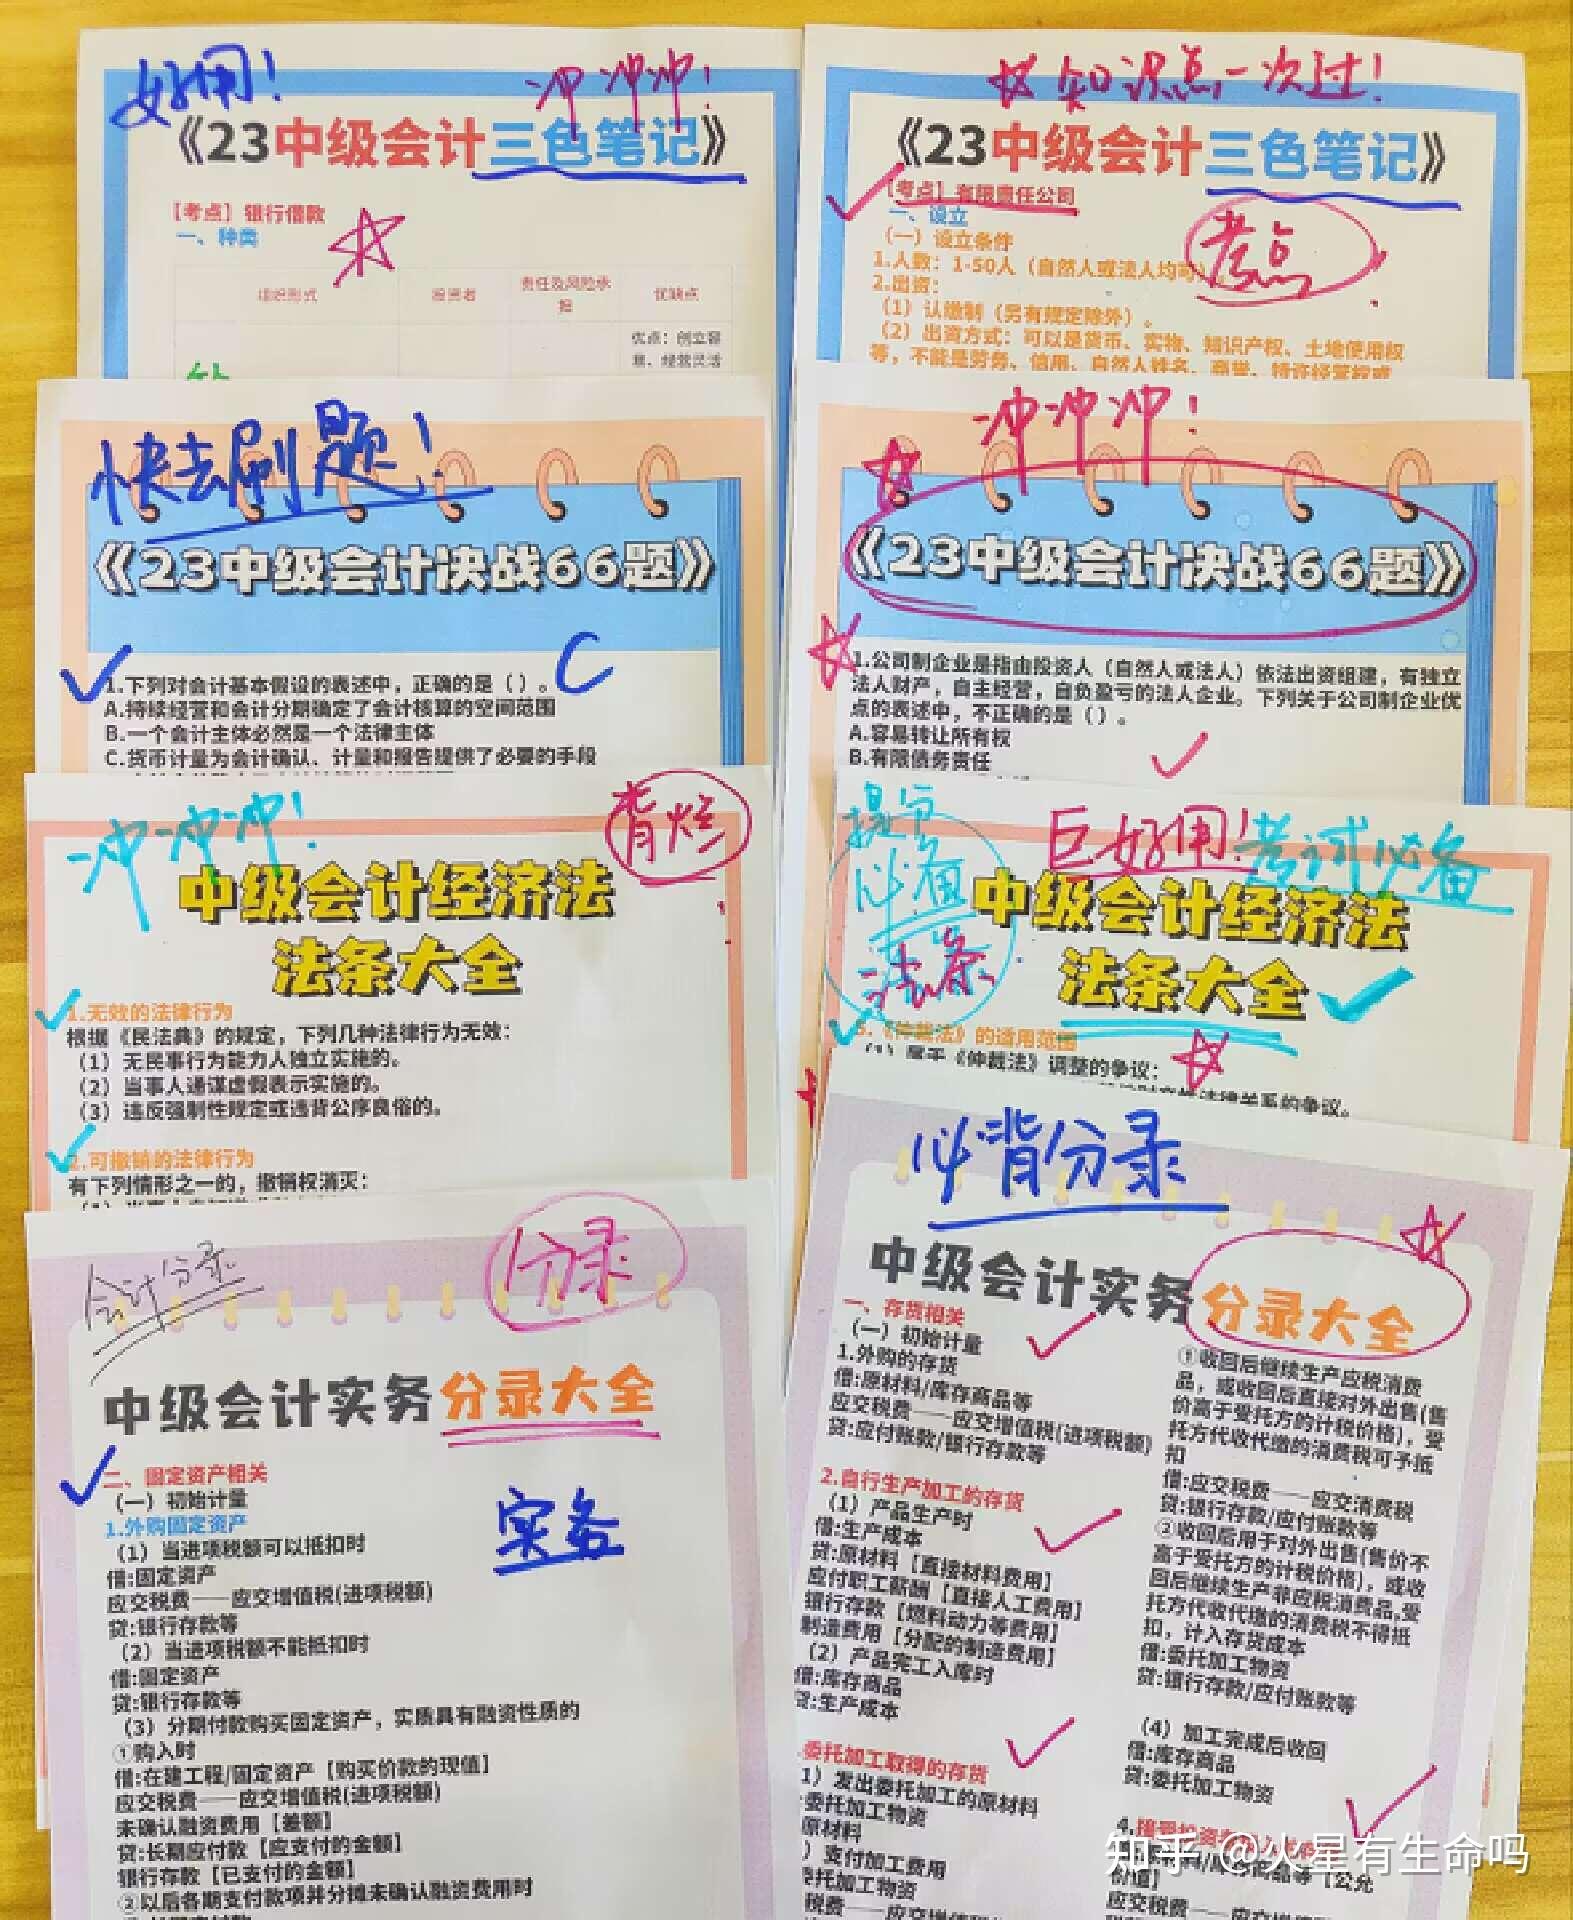 好用!
冲冲冲!
《23中级会计三色笔记》
【考点】银行借款
一、种类
组织形式
投资者
责任及风险承担
优缺点
优点：创立容
易、经营灵活
知识点一次过!
《23中级会计三色笔记》
【考点】有限责任公司
一、设立
考点
（一）设立条件
1.人数：1-50人（自然人或法人均可）
2.出资：
（1）认缴制（另有规定除外）。
（2）出资方式：可以是货币、实物、知识产权、土地使用权
等，不能是劳务、信用、自然人姓名、商誉、特许经营权或
快去刷题!
《23中级会计决战66题》
C
1.下列对会计基本假设的表述中，正确的是（ ）。
A.持续经营和会计分期确定了会计核算的空间范围
B.一个会计主体必然是一个法律主体
C.货币计量为会计确认、计量和报告提供了必要的手段
冲冲冲!
《23中级会计决战66题》
1.公司制企业是指由投资人（自然人或法人）依法出资组建，有独立
法人财产，自主经营，自负盈亏的法人企业。下列关于公司制企业优
点的表述中，不正确的是（ ）。
A.容易转让所有权
B.有限债务责任
冲冲冲!
背烂
中级会计经济法
法条大全
1.无效的法律行为
根据《民法典》的规定，下列几种法律行为无效：
（1）无民事行为能力人独立实施的。
（2）当事人通谋虚假表示实施的。
（3）违反强制性规定或违背公序良俗的。
2.可撤销的法律行为
有下列情形之一的，撤销权消灭：
提分
必备
法条
巨好用!
考试必备
中级会计经济法
法条大全
5.《仲裁法》的适用范围
（1）属于《仲裁法》调整的争议：
会计分录
分录
中级会计实务分录大全
二、固定资产相关
（一）初始计量
实务
1.外购固定资产
（1）当进项税额可以抵扣时
借:固定资产
应交税费——应交增值税(进项税额)
贷:银行存款等
（2）当进项税额不能抵扣时
借:固定资产
贷:银行存款等
（3）分期付款购买固定资产，实质具有融资性质的
①购入时
借:在建工程/固定资产【购买价款的现值】
应交税费——应交增值税(进项税额)
未确认融资费用【差额】
贷:长期应付款【应支付的金额】
银行存款【已支付的金额】
②以后各期支付款项并分摊未确认融资费用时
必背分录
中级会计实务分录大全
一、存货相关
（一）初始计量
1.外购的存货
借:原材料/库存商品等
应交税费——应交增值税(进项税额)
贷:应付账款/银行存款等
2.自行生产加工的存货
（1）产品生产时
借:生产成本
贷:原材料【直接材料费用】
应付职工薪酬【直接人工费用】
银行存款【燃料动力等费用】
制造费用【分配的制造费用】
（2）产品完工入库时
借:库存商品
贷:生产成本
委托加工取得的存货
1）发出委托加工的原材料
委托加工物资
原材料
）支付加工费用
委托加工物资
税费——应交增值税
①收回后继续生产应税消费
品，或收回后直接对外出售(售
价高于受托方的计税价格)，受
托方代收代缴的消费税可予抵
扣
借:应交税费——应交消费税
贷:银行存款/应付账款等
②收回后用于对外出售(售价不
高于受托方的计税价格)，或收
回后继续生产非应税消费品,受
托方代收代缴的消费税不得抵
扣，计入存货成本
借:委托加工物资
贷:银行存款/应付账款等
（4）加工完成后收回
借:库存商品
贷:委托加工物资
4.接受投资者投入
原材料/库存商品等【公允
价值】
应交税费——应交增值税
知乎 @火星有生命吗